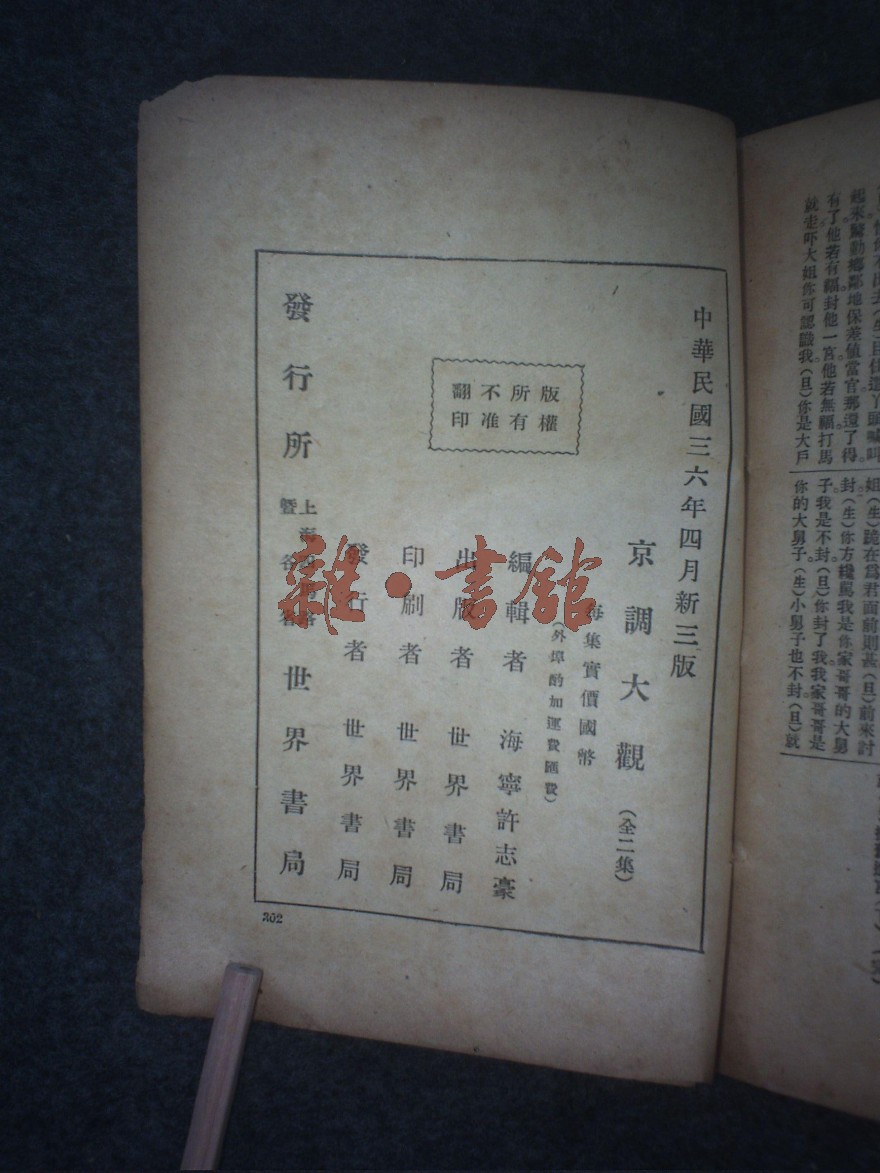 起來驚動鄉鄰地保差値當官那還了得。
有了他若有福封他一宮他若無福打馬
就走吓大姐你可認識我(旦)你是大戶
姐(生)跪在爲君面前則甚(旦)前來討
封(生)你方纔罵我是你家哥哥的大舅
子我是不封(旦)你封了我我家哥哥是
你的大舅子(生)小舅子也不封(旦)就
中華民國三六年四月新三版
京調大觀(全二集)
每集實價國幣
(外埠酌加運費匯費)
編輯者 海寧許志豪
出版者 世界書局
印刷者 世界書局
發行者 世界書局
發行所
上海
暨各
世界書局
版權
所有
不准
翻印
302
雜·書館